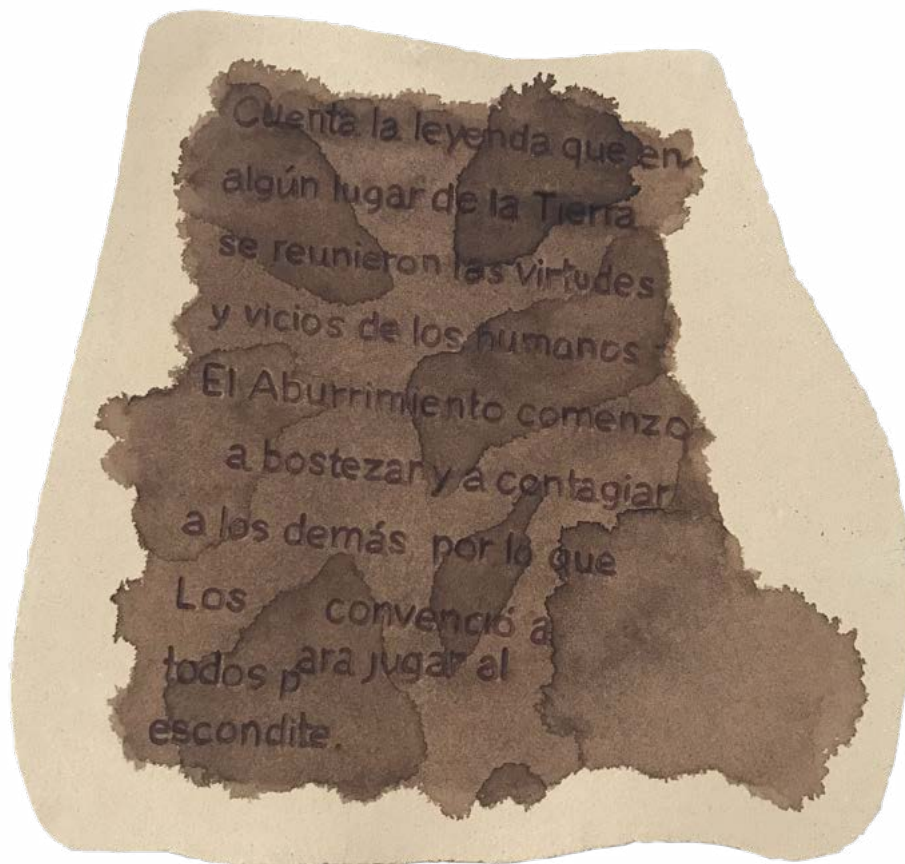 Cuenta la leyenda que en
algún lugar de la Tierra
se reunieron las virtudes
y vicios de los humanos
El Aburrimiento comenzo
a bostezar y a contagiar
a los demás por lo que
Los convenció a
todos para jugar al
escondite.